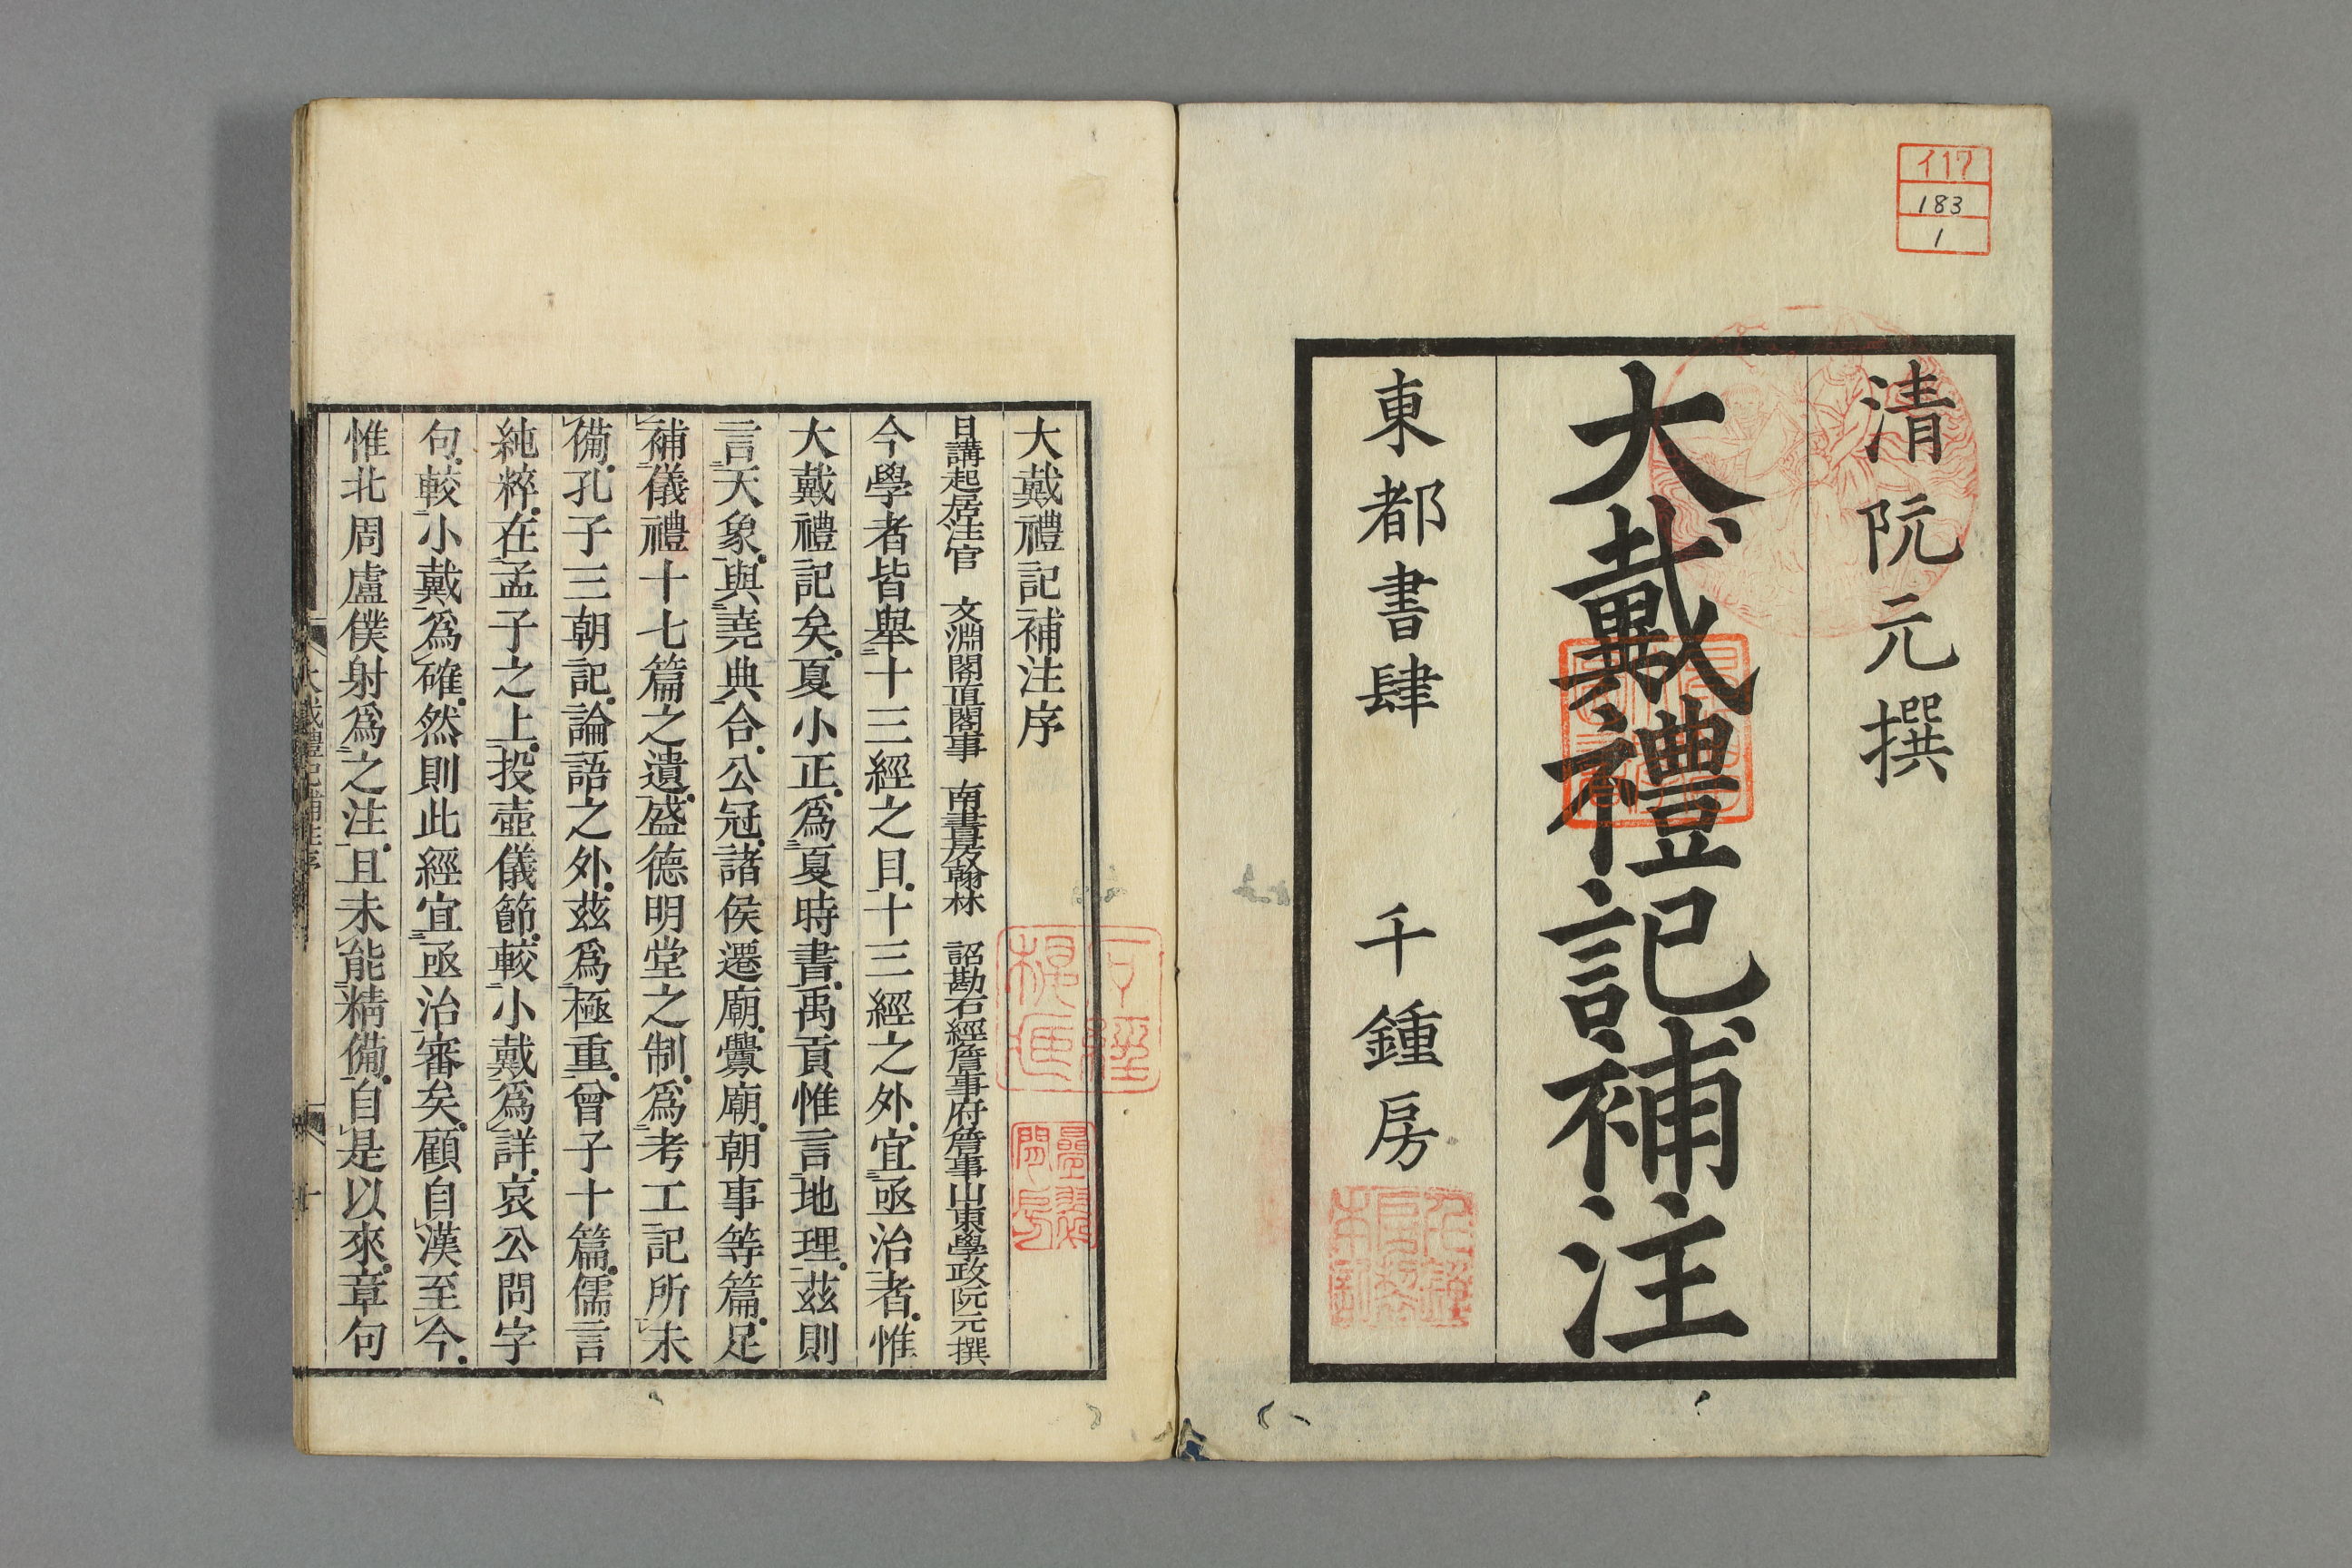 イ17
183
1
清阮元撰
大戴禮記補注
東都書肆 千鍾房
大戴禮記補注序
日講起居注官 文淵閣直閣事 南書房翰林 詔勘石經詹事府詹事山東學政阮元撰
今學者皆舉十三經之目十三經之外宜亟治者惟
大戴禮記矣夏小正爲夏時書禹貢惟言地理茲則
言天象與堯典合公冠諸侯遷廟釁廟朝事等篇足
補儀禮十七篇之遺盛德明堂之制爲考工記所未
備孔子三朝記論語之外茲爲極重曾子十篇儒言
純粹在孟子之上投壺儀節較小戴爲詳哀公問字
句較小戴爲確然則此經宜亟治審矣顧自漢至今
惟北周盧僕射爲之注且未能精備自是以來章句
大戴禮記補注序